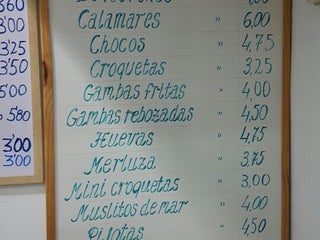 360
3'00
3'25
3'50
3'00
580
3'00
3'00
Calamares " 6,00
Chocos " 4,75
Croquetas " 3,25
Gambas fritas " 4,00
Gambas rebozadas " 4,50
Huevas " 4,75
Merluza " 3,75
Mini croquetas " 3,00
Muslitos de mar " 4,00
Pijotas " 4,50